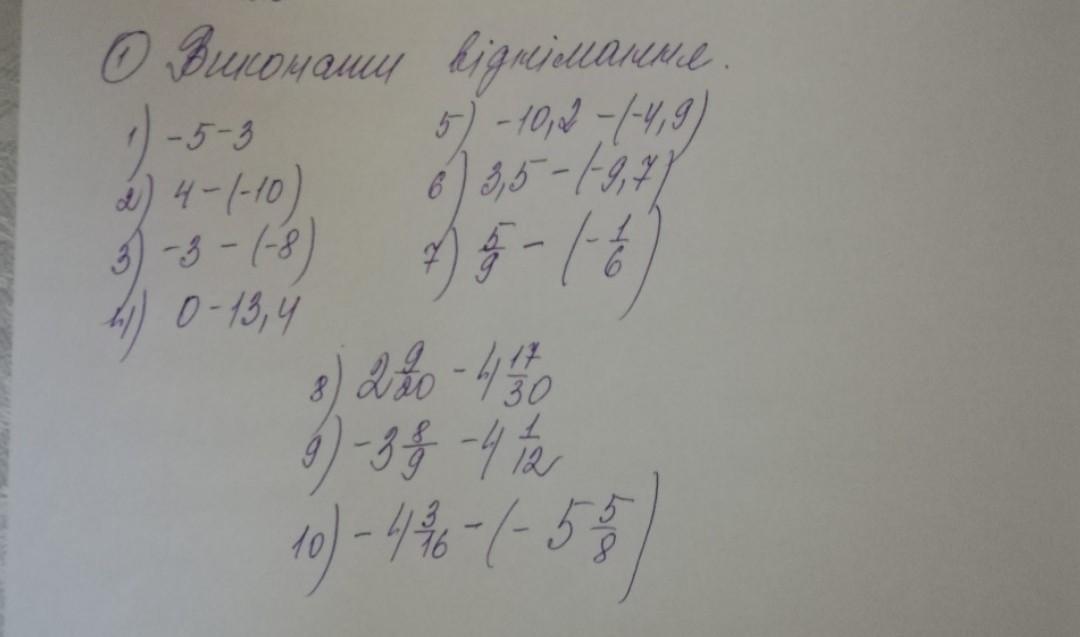 ① Виконати віднімання.
1) -5-3
2) 4-(-10)
3) -3-(-8)
4) 0-13,4
5) -10,2-(-4,9)
6) 3,5-(-9,7)
7) 5/9 - (-1/6)
8) 2 9/20 - 4 17/30
9) -3 8/9 - 4 1/12
10) -4 3/16 - (-5 5/8)